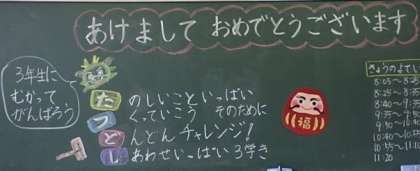 あけまして おめでとうございます
3年生に
むかって
がんばろう
たのしいこといっぱい
つくっていこう そのために
どんどんチャレンジ!
しあわせいっぱい 3学き
福
きょうのよてい
8:05~8:25
8:25~8:35
8:40~9:25
10:40~
11:20